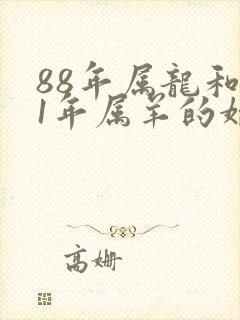 88年属龍和
1年属羊的
高姗